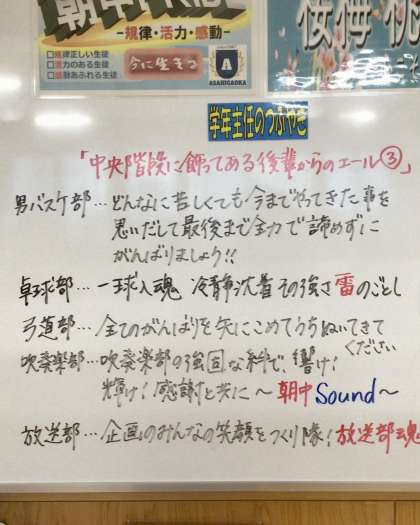 -規律・活力・感動-
□規律正しい生徒
□活力のある生徒
□感動あふれる生徒
今に生きる
A
ASAHIGAOKA
学年主任のつぶやき
「中央階段に飾ってある後輩からのエール③」
男バスケ部…どんなに苦しくても今までやってきた事を
思いだして最後まで全力で諦めずに
がんばりましょう!!
卓球部…一球入魂 冷静沈着その強さ雷のごとし
弓道部…全てのがんばりを矢にこめてうちぬいてきて
ください
吹奏楽部…吹奏楽部の強固な絆で、響け!
輝け!感謝と共に～朝中Sound～
放送部…企画のみんなの笑顔をつくり隊!放送部魂